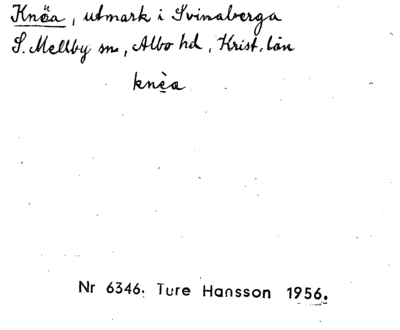 Knöa, utmark i Svinaberga
S. Mellby sn, Albo hd, Krist. län
knèa
Nr 6346. Ture Hansson 1956.